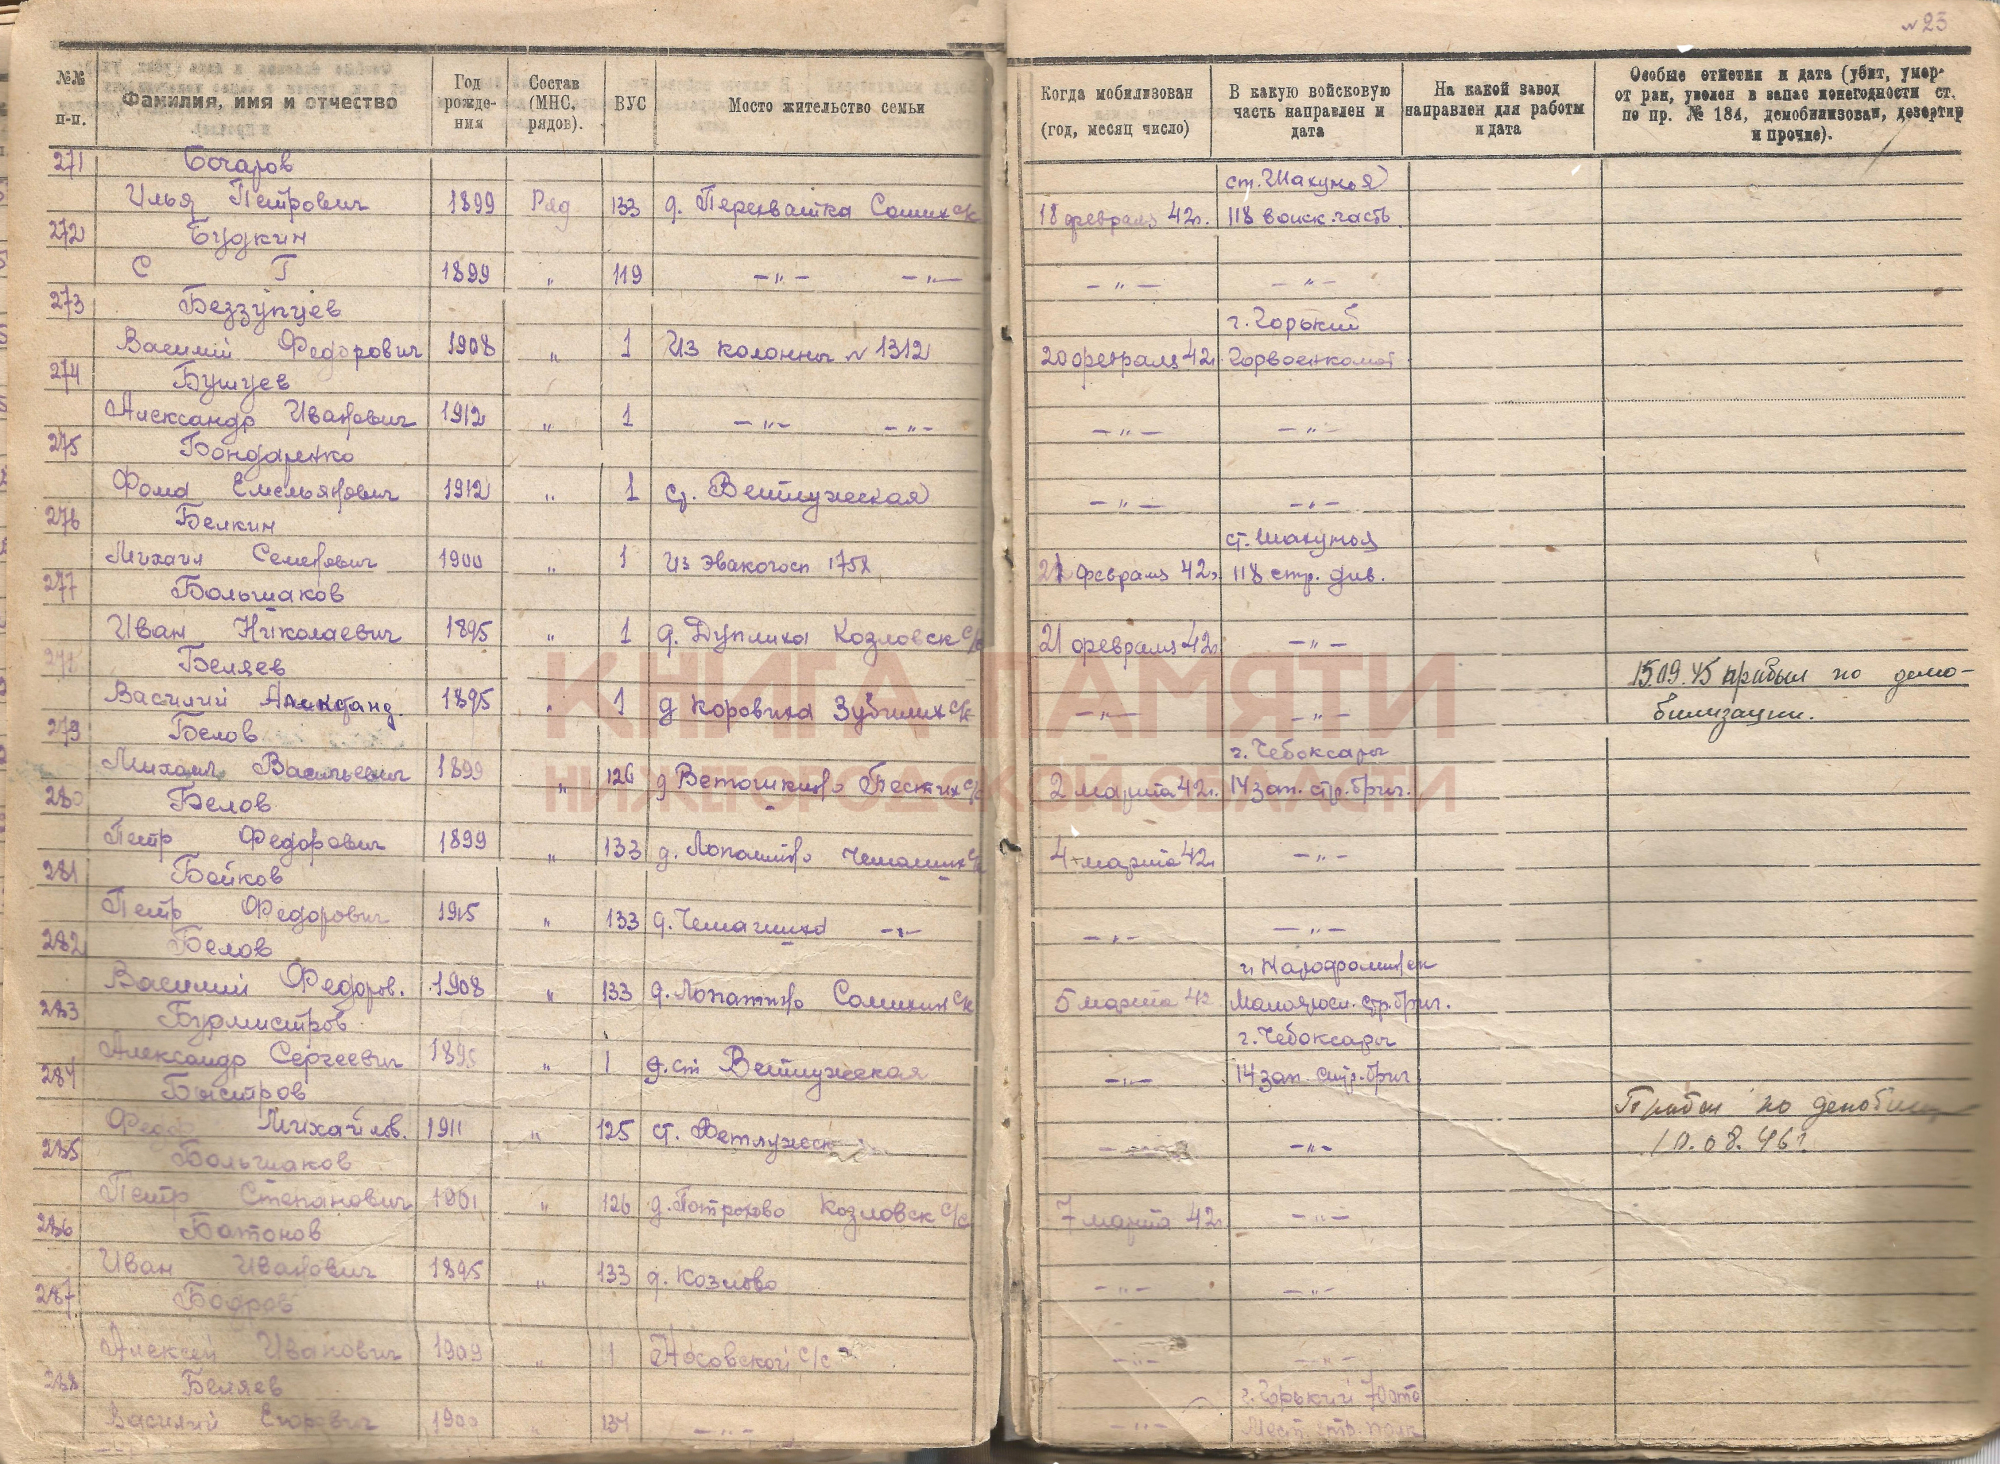 № 23
№№ п-п.
Фамилия, имя и отчество
Год рождения
Состав (МНС, рядов).
ВУС
Место жительство семьи
Когда мобилизован (год, месяц число)
В какую войсковую часть направлен и дата
На какой завод направлен для работы и дата
Особые отметки и дата (убит, умер от ран, уволен в запас по негодности ст. по пр. № 184, демобилизован, дезертир и прочие).
271 Бочаров
ст. Шахунья
Илья Петрович 1899 Ряд 133 д. Перехватка с/с 18 февраля 42г. 118 воиск. часть
272 Будкин
С Г 1899 „ 119 —„— —„— —„— —„—
273 Беззупцев
г. Горький
Василий Федорович 1908 „ 1 Из колонны № 1312 20 февраля 42г. Горвоенкомат
274 Бушуев
Александр Иванович 1912 „ 1 —„— —„— —„— —„—
275 Бондаренко
Фома Емельянович 1912 „ 1 ст. Ветлужская —„— —„—
276 Белкин
ст. Шахунья
Михаил Семенович 1900 „ 1 Из эвакогосп 1752 21 февраля 42г. 118 стр. див.
277 Большаков
Иван Николаевич 1895 „ 1 д. Дуплиха Козловск с/с 21 февраля 42г. —„—
278 Беляев
15.09.45 прибыл по демо-
Василий Александ. 1895 „ 1 д Коровиха Зубилих с/с —„— —„—
билизации.
279 Белов
г. Чебоксары
Михаил Васильевич 1899 „ 126 д Ветошкино с/с 2 марта 42г. 14 зап. стр. бриг.
280 Белов
Петр Федорович 1899 „ 133 д. Лопатино с/с 4 марта 42г. —„—
281 Бойков
Петр Федорович 1915 „ 133 д. Чемашиха —„— —„— —„—
282 Белов
г. Нарофоминск
Василий Федоров. 1908 „ 133 д. Лопатино с/с 5 марта 42 стр. бриг.
283 Бурмистров
г. Чебоксары
Александр Сергеевич 1895 „ 1 д. ст Ветлужская —„— 14 зап. стр. бриг
284 Быстров
Прибыл по демобилиз
Федор Михайлов. 1911 „ 125 ст. Ветлужск —„— —„—
10.08.46г.
285 Большаков
Петр Степанович 1901 „ 126 д. Петрохово Козловск с/с 7 марта 42г. —„—
286 Батонов
Иван Иванович 1895 „ 133 д. Козлово —„— —„—
287 Бодров
Алексей Иванович 1909 „ 1 Носовской с/с —„— —„—
288 Беляев
г. Горький
Василий Егорович 1900 „ 134 —„— —„— стр. полк
КНИГА ПАМЯТИ
НИЖЕГОРОДСКОЙ ОБЛАСТИ